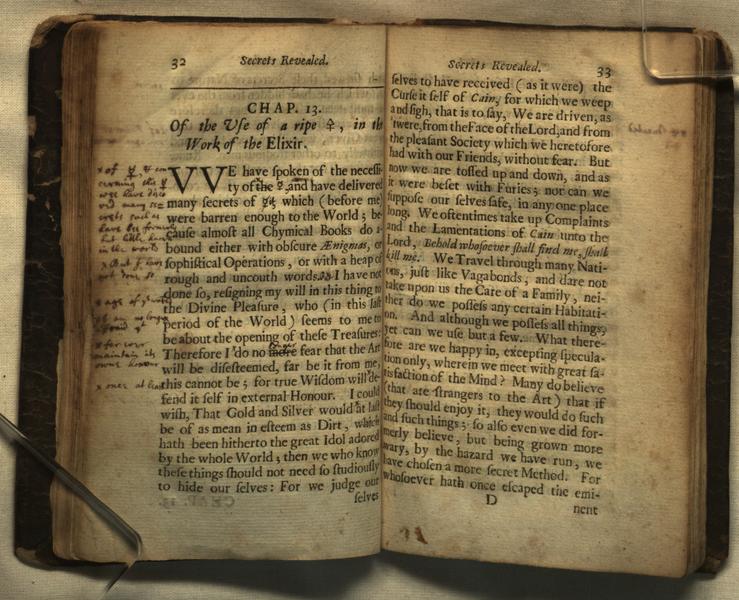 32 Secrets Revealed.
CHAP. 13.
Of the Use of a ripe ☿, in th
Work of the Elixir.
WE have spoken of the necessi
ty of the ☿, and have delivered
many secrets of ☿, which (before me)
were barren enough to the World; be
cause almost all Chymical Books do a
bound either with obscure Ænigmas, or
sophistical Operations, or with a heap of
rough and uncouth words. I have not
done so, resigning my will in this thing to
the Divine Pleasure, who (in this last
period of the World) seems to me to
be about the opening of these Treasures:
Therefore I do no more longer fear that the Art
will be disesteemed, far be it from me,
this cannot be; for true Wisdom will de-
fend it self in external Honour. I could
wish, That Gold and Silver would at last
be of as mean in esteem as Dirt, which
hath been hitherto the great Idol adored
by the whole World; then we who know
these things should not need so studiously
to hide our selves: For we judge our
selves
x of ☿, & con
cerning this ☿
we have disco
in the world
x But I have
not done so.
x far war
maintain its
owne honor
x once at least
Secrets Revealed. 33
selves to have received (as it were) the
Curse it self of Cain, for which we weep
and sigh, that is to say, We are driven, as
'twere, from the Face of the Lord, and from
the pleasant Society which we heretofore
had with our Friends, without fear. But
now we are tossed up and down, and as
it were beset with Furies; nor can we
suppose our selves safe, in any one place
long. We oftentimes take up Complaints
and the Lamentations of Cain unto the
Lord, Behold whosoever shall find me, shall
kill me. We Travel through many Nati-
ons, just like Vagabonds, and dare not
take upon us the Care of a Family, nei-
ther do we possess any certain Habitati-
on. And although we possess all things,
yet can we use but a few. What there-
fore are we happy in, excepting specula-
tion only, wherein we meet with great sa-
tisfaction of the Mind? Many do believe
(that are strangers to the Art) that if
they should enjoy it, they would do such
and such things; so also even we did for-
merly believe, but being grown more
wary, by the hazard we have run, we
have chosen a more secret Method. For
whosoever hath once escaped the emi-
D nent